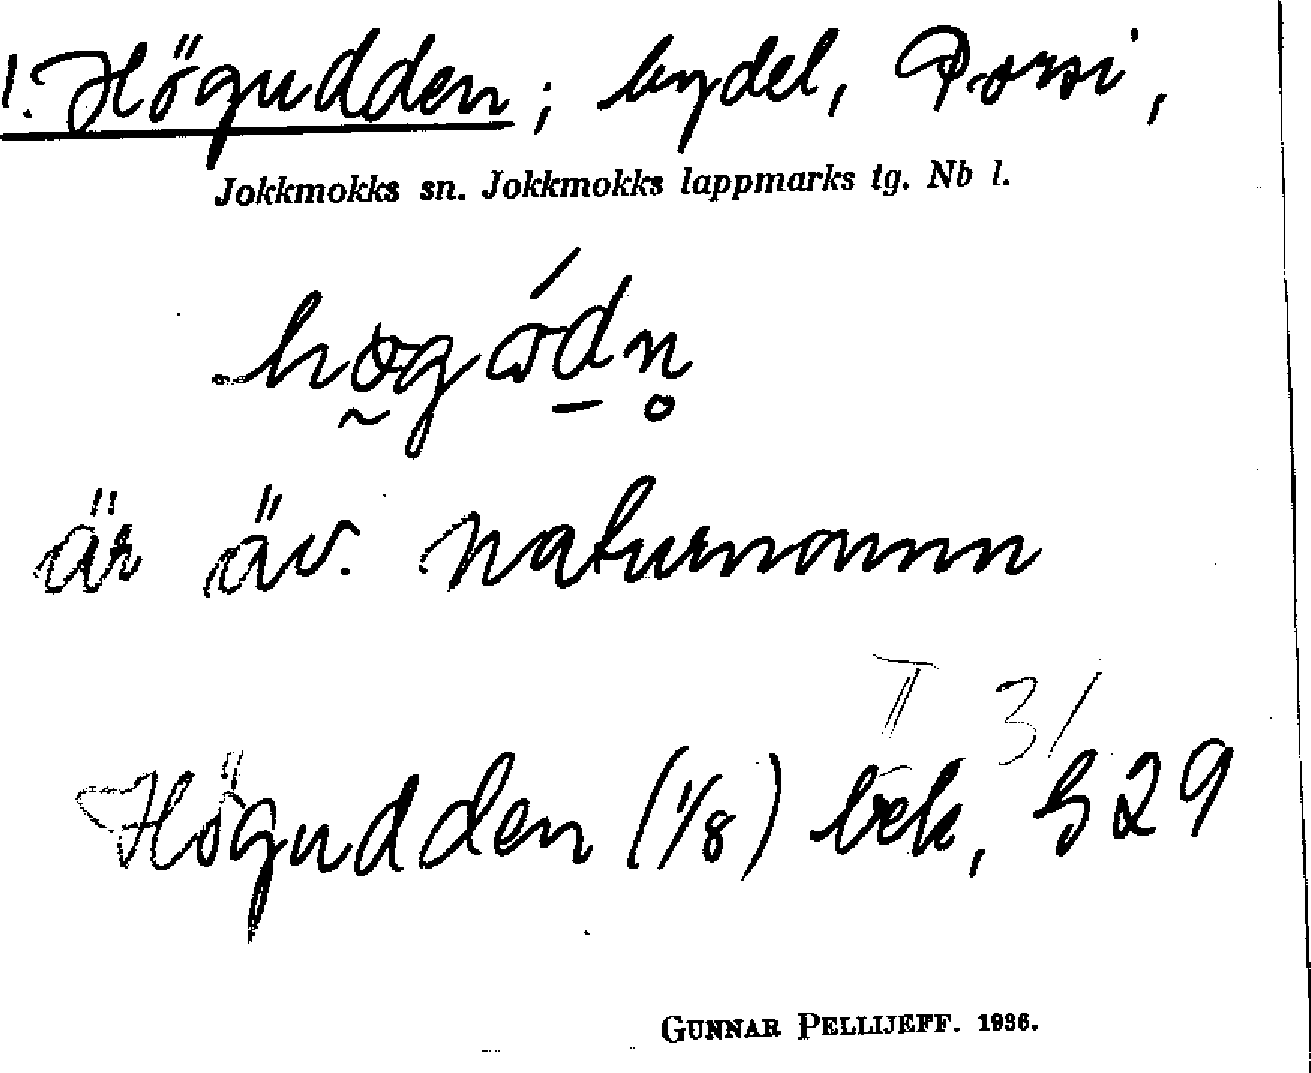 1. Högudden; bydel, Porsi,
Jokkmokks sn. Jokkmokks lappmarks tg. Nb l.
är äv. naturnamn
II 31
Högudden (1/8) bek, S 29
GUNNAR PELLIJEFF. 1936.